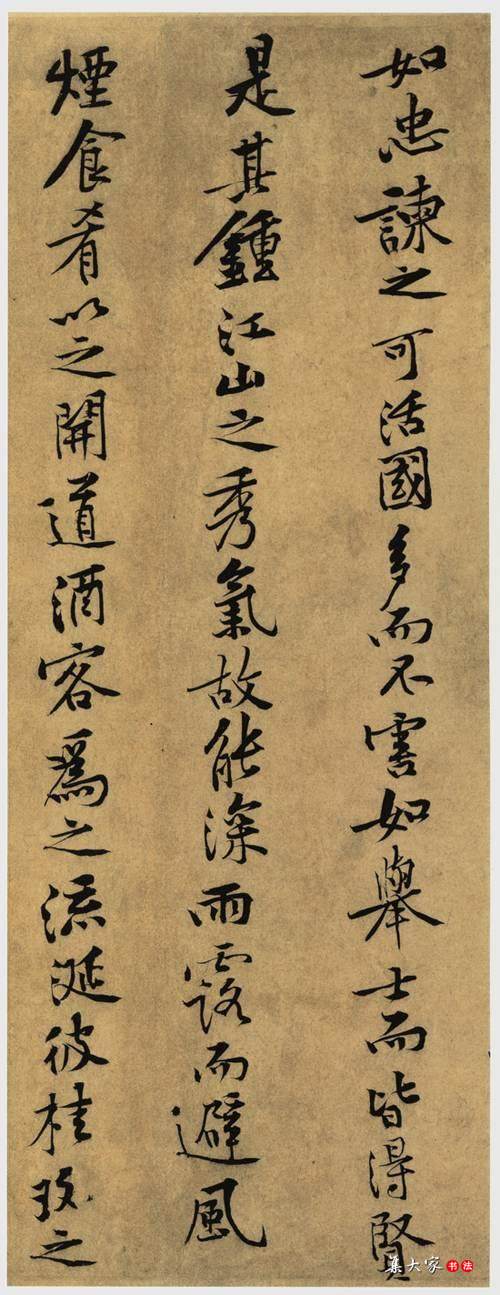 如忠諫之可活國多而不害如舉士而皆得賢
是其鍾江山之秀氣故能深雨露而避風
煙食肴以之開道酒客爲之流涎彼桂玫之
集大家 书法